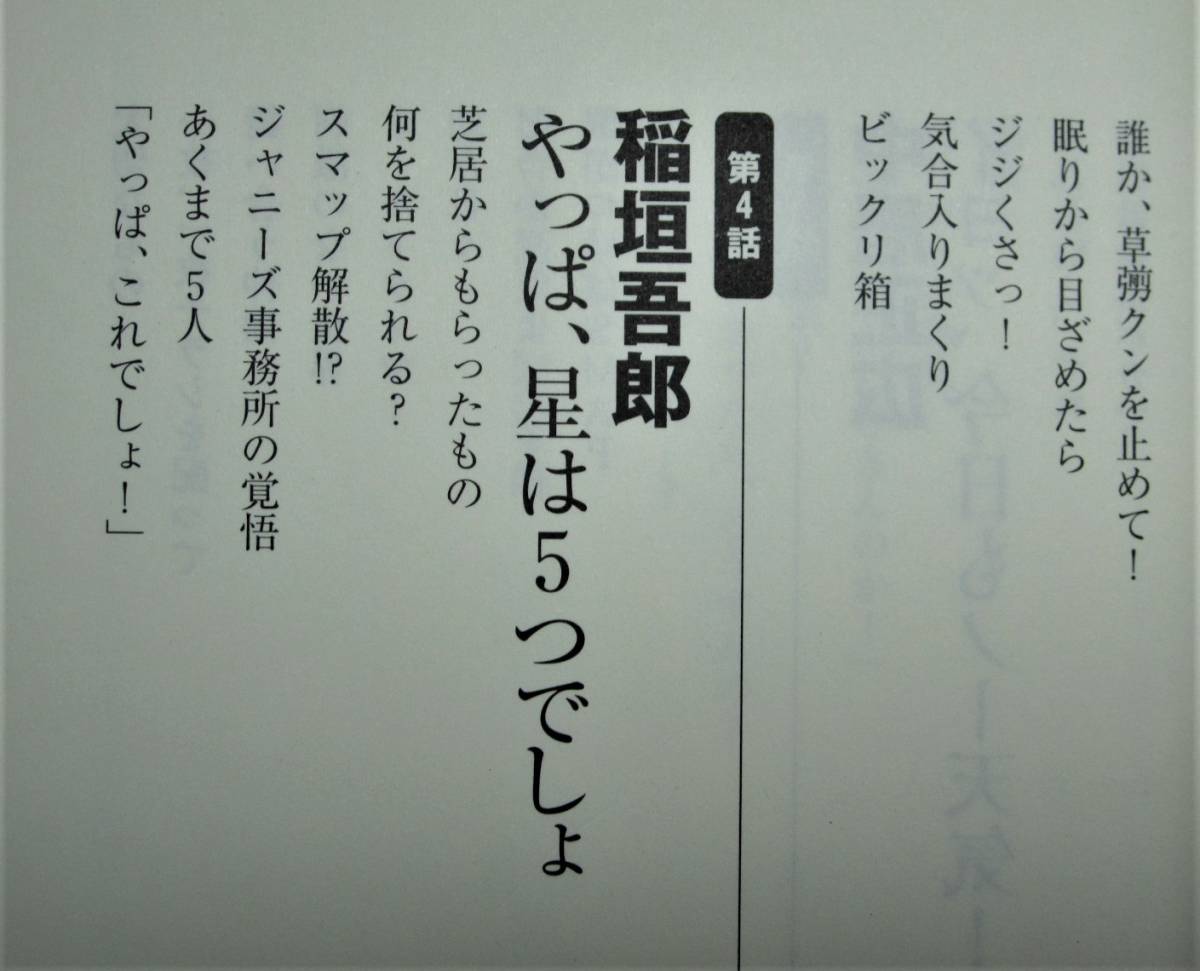 誰か、草彅クンを止めて！
眠りから目ざめたら
ジジくさっ！
気合入りまくり
ビックリ箱
第4話
稲垣吾郎
やっぱ、星は5つでしょ
芝居からもらったもの
何を捨てられる？
スマップ解散!?
ジャニーズ事務所の覚悟
あくまで5人
「やっぱ、これでしょ！」